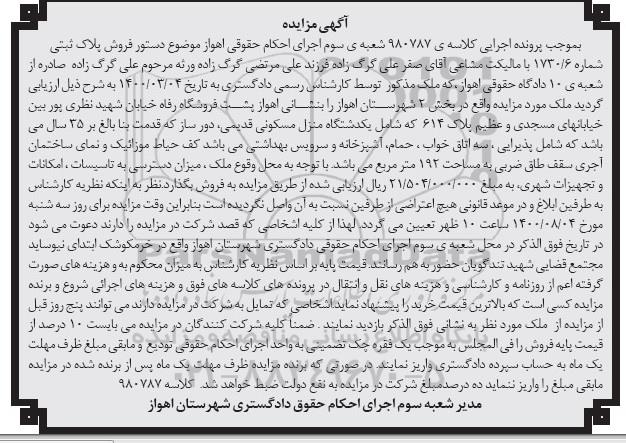 آگهی مزایده
بموجب پرونده اجرایی کلاسه ی ۹۸۰۷۸۷ شعبه ی سوم اجرای احکام حقوقی اهواز موضوع دستور فروش پلاک ثبتی
شماره ۱۷۳۰/۶ با مالیکت مشاعی آقای صفرعلی گرگ زاده فرزند علی مرتضی گرگ زاده ورثه مرحوم علی گرگ زاده صادره از
شعبه ی ۱۰ دادگاه حقوقی اهواز، که ملک مذکور توسط کارشناس رسمی دادگستری به تاریخ ۱۴۰۰/۰۳/۰۴ به شرح ذیل ارزیابی
گردید ملک مورد مزایده واقع در بخش ۲ شهرستان اهواز را بنشانی اهواز پشت فروشگاه رفاه خیابان شهید نظری پور بین
خیابانهای مسجدی و عظیم پلاک ۶۱۴ که شامل یکدستگاه منزل مسکونی قدیمی، دور ساز که قدمت بنا بالغ بر ۳۵ سال می
باشد که شامل پذیرایی ، سه اتاق خواب ، حمام، آشپزخانه و سرویس بهداشتی می باشد کف حیاط موزائیک و نمای ساختمان
آجری سقف طاق ضربی به مساحت ۱۹۲ متر مربع می باشد. با توجه به محل وقوع ملک ، میزان دسترسی به تاسیسات ، امکانات
و تجهیزات شهری، به مبلغ ۲۱/۵۰۴/۰۰۰/۰۰۰ ریال ارزیابی شده از طریق مزایده به فروش بگذارد.نظر به اینکه نظریه کارشناس
به طرفین ابلاغ و در موعد قانونی هیچ اعتراضی از طرفین نسبت به آن واصل نگردیده است بنابراین وقت مزایده برای روز سه شنبه
مورخ ۱۴۰۰/۰۸/۰۴ ساعت ۱۰ ظهر تعیین می گردد. لهذا از کلیه اشخاصی که قصد شرکت در مزایده را دارند دعوت می شود
در تاریخ فوق الذکر در محل شعبه ی سوم اجرای احکام حقوقی دادگستری شهرستان اهواز واقع در خرمکوشک ابتدای نیوساید
مجتمع قضایی شهید تندگویان حضور به هم رسانند. قیمت پایه بر اساس نظریه کارشناس به میزان محکوم به و هزینه های صورت
گرفته اعم از روزنامه و کارشناسی و هزینه های نقل و انتقال در پرونده های کلاسه های فوق و هزینه های اجرائی شروع و برنده
مزایده کسی است که بالاترین قیمت خرید را پیشنهاد نماید اشخاصی که تمایل به شرکت در مزایده دارند می توانند پنج روز قبل
از مزایده از ملک مورد نظر به نشانی فوق الذکر بازدید نمایند . ضمناً کلیه شرکت کنندگان در مزایده می بایست ۱۰ درصد از
قیمت پایه فروش را فی المجلس به موجب یک فقره چک تضمینی به واحد اجرای احکام حقوقی تودیع و مابقی مبلغ ظرف مهلت
یک ماه به حساب سپرده دادگستری واریز نمایند. در صورتی که برنده مزایده ظرف مهلت یک ماه پس از برنده شده در مزایده
مابقی مبلغ را واریز ننماید ده درصدمبلغ شرکت در مزایده به نفع دولت ضبط خواهد شد. کلاسه ۹۸۰۷۸۷
مدیر شعبه سوم اجرای احکام حقوق دادگستری شهرستان اهواز
ParsNamadData